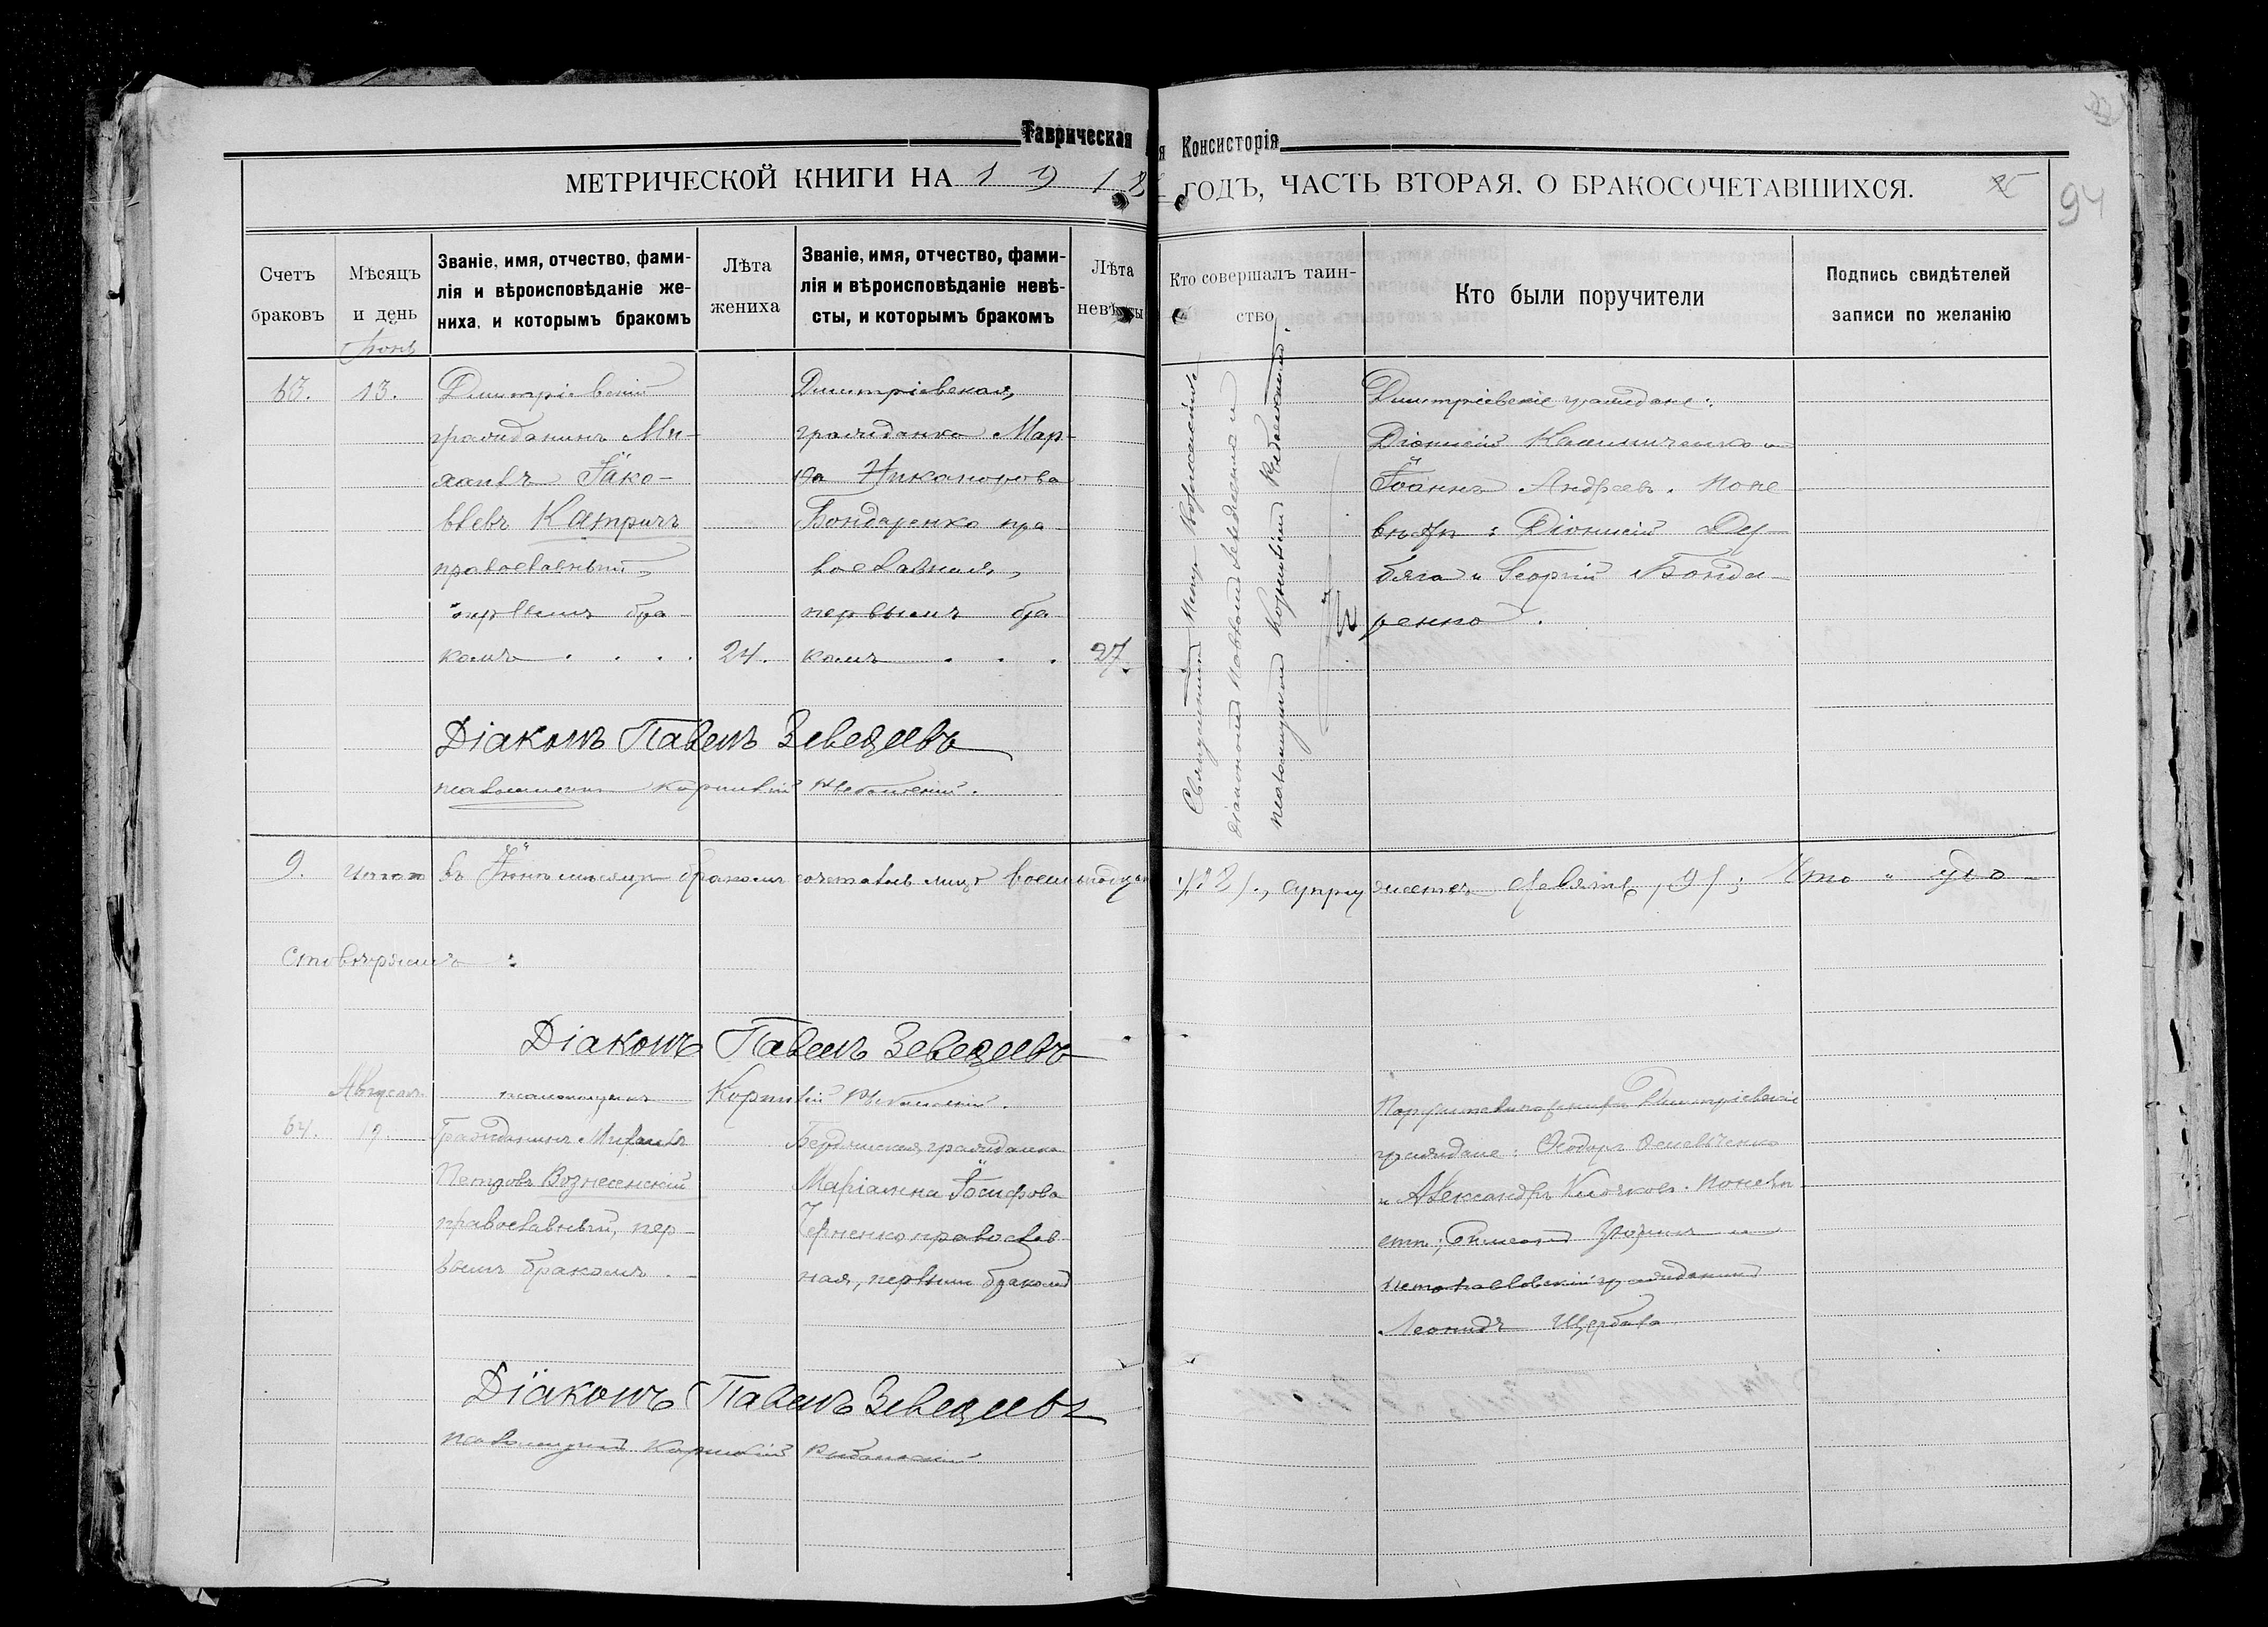 Таврическая
я Консисторія
МЕТРИЧЕСКОЙ КНИГИ НА 1918
ГОДЪ, ЧАСТЬ ВТОРАЯ. О БРАКОСОЧЕТАВШИХСЯ.
94
Счетъ браковъ
Мѣсяцъ и день
Званіе, имя, отчество, фами-
лія и вѣроисповѣданіе же-
ниха, и которымъ бракомъ
Лѣта жениха
Званіе, имя, отчество, фами-
лія и вѣроисповѣданіе невѣ-
сты, и которымъ бракомъ
Лѣта невѣсты
Кто совершалъ таин-
ство
Кто были поручители
Подпись свидѣтелей
записи по желанію
Іюнь
63.
13.
Дмитріевскій
гражданинъ Ми-
хаилъ Іако-
влевъ Катричъ
православный,
первымъ бра-
комъ
24.
Дмитріевская,
гражданка Мар-
ѳа Никанорова
Бондаренко пра-
вославная,
первымъ бра-
комъ
27.
Священникъ
діакономъ Павломъ Зеведеевымъ и
псаломщикомъ Корниліемъ
Дмитріевскіе граждане:
Діонисій Калиниченко и
Іоаннъ Андреевъ. По не
вѣстѣ: Діонисій Де
бяга и Георгій Бонда-
ренко.
Діаконъ Павелъ Зеведеевъ
псаломщикъ Корнилій
9.
Итого въ Іюнѣ мѣсяцѣ бракомъ сочеталось лицъ восемьнадцать /18/, супружествъ девять /9/; Что и удо-
стовѣряемъ:
Діаконъ Павелъ Зеведеевъ
псаломщикъ Корнилій
Августъ
64.
19.
Гражданинъ Михаилъ
Петровъ Вознесенскій
православный, пер-
вымъ бракомъ.
Бердянская гражданка
Маріанна Іосифова
Черненко православ
ная, первымъ бракомъ
Поручители по женихѣ Дмитріевскіе
граждане: Ѳеодоръ
и Александръ Клочковъ. По невѣ
стѣ:
Петропавловскій гражданинъ
Леонидъ Щербава
Діаконъ Павелъ Зеведеевъ
псаломщикъ Корнилій